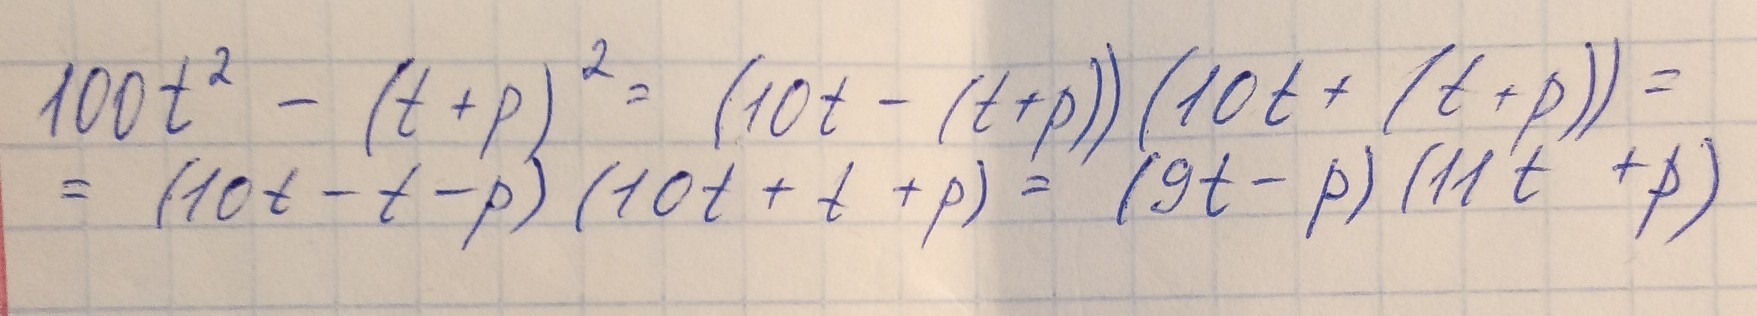 100t² - (t+p)² = (10t - (t+p))(10t + (t+p)) =
= (10t - t - p)(10t + t + p) = (9t - p)(11t + p)